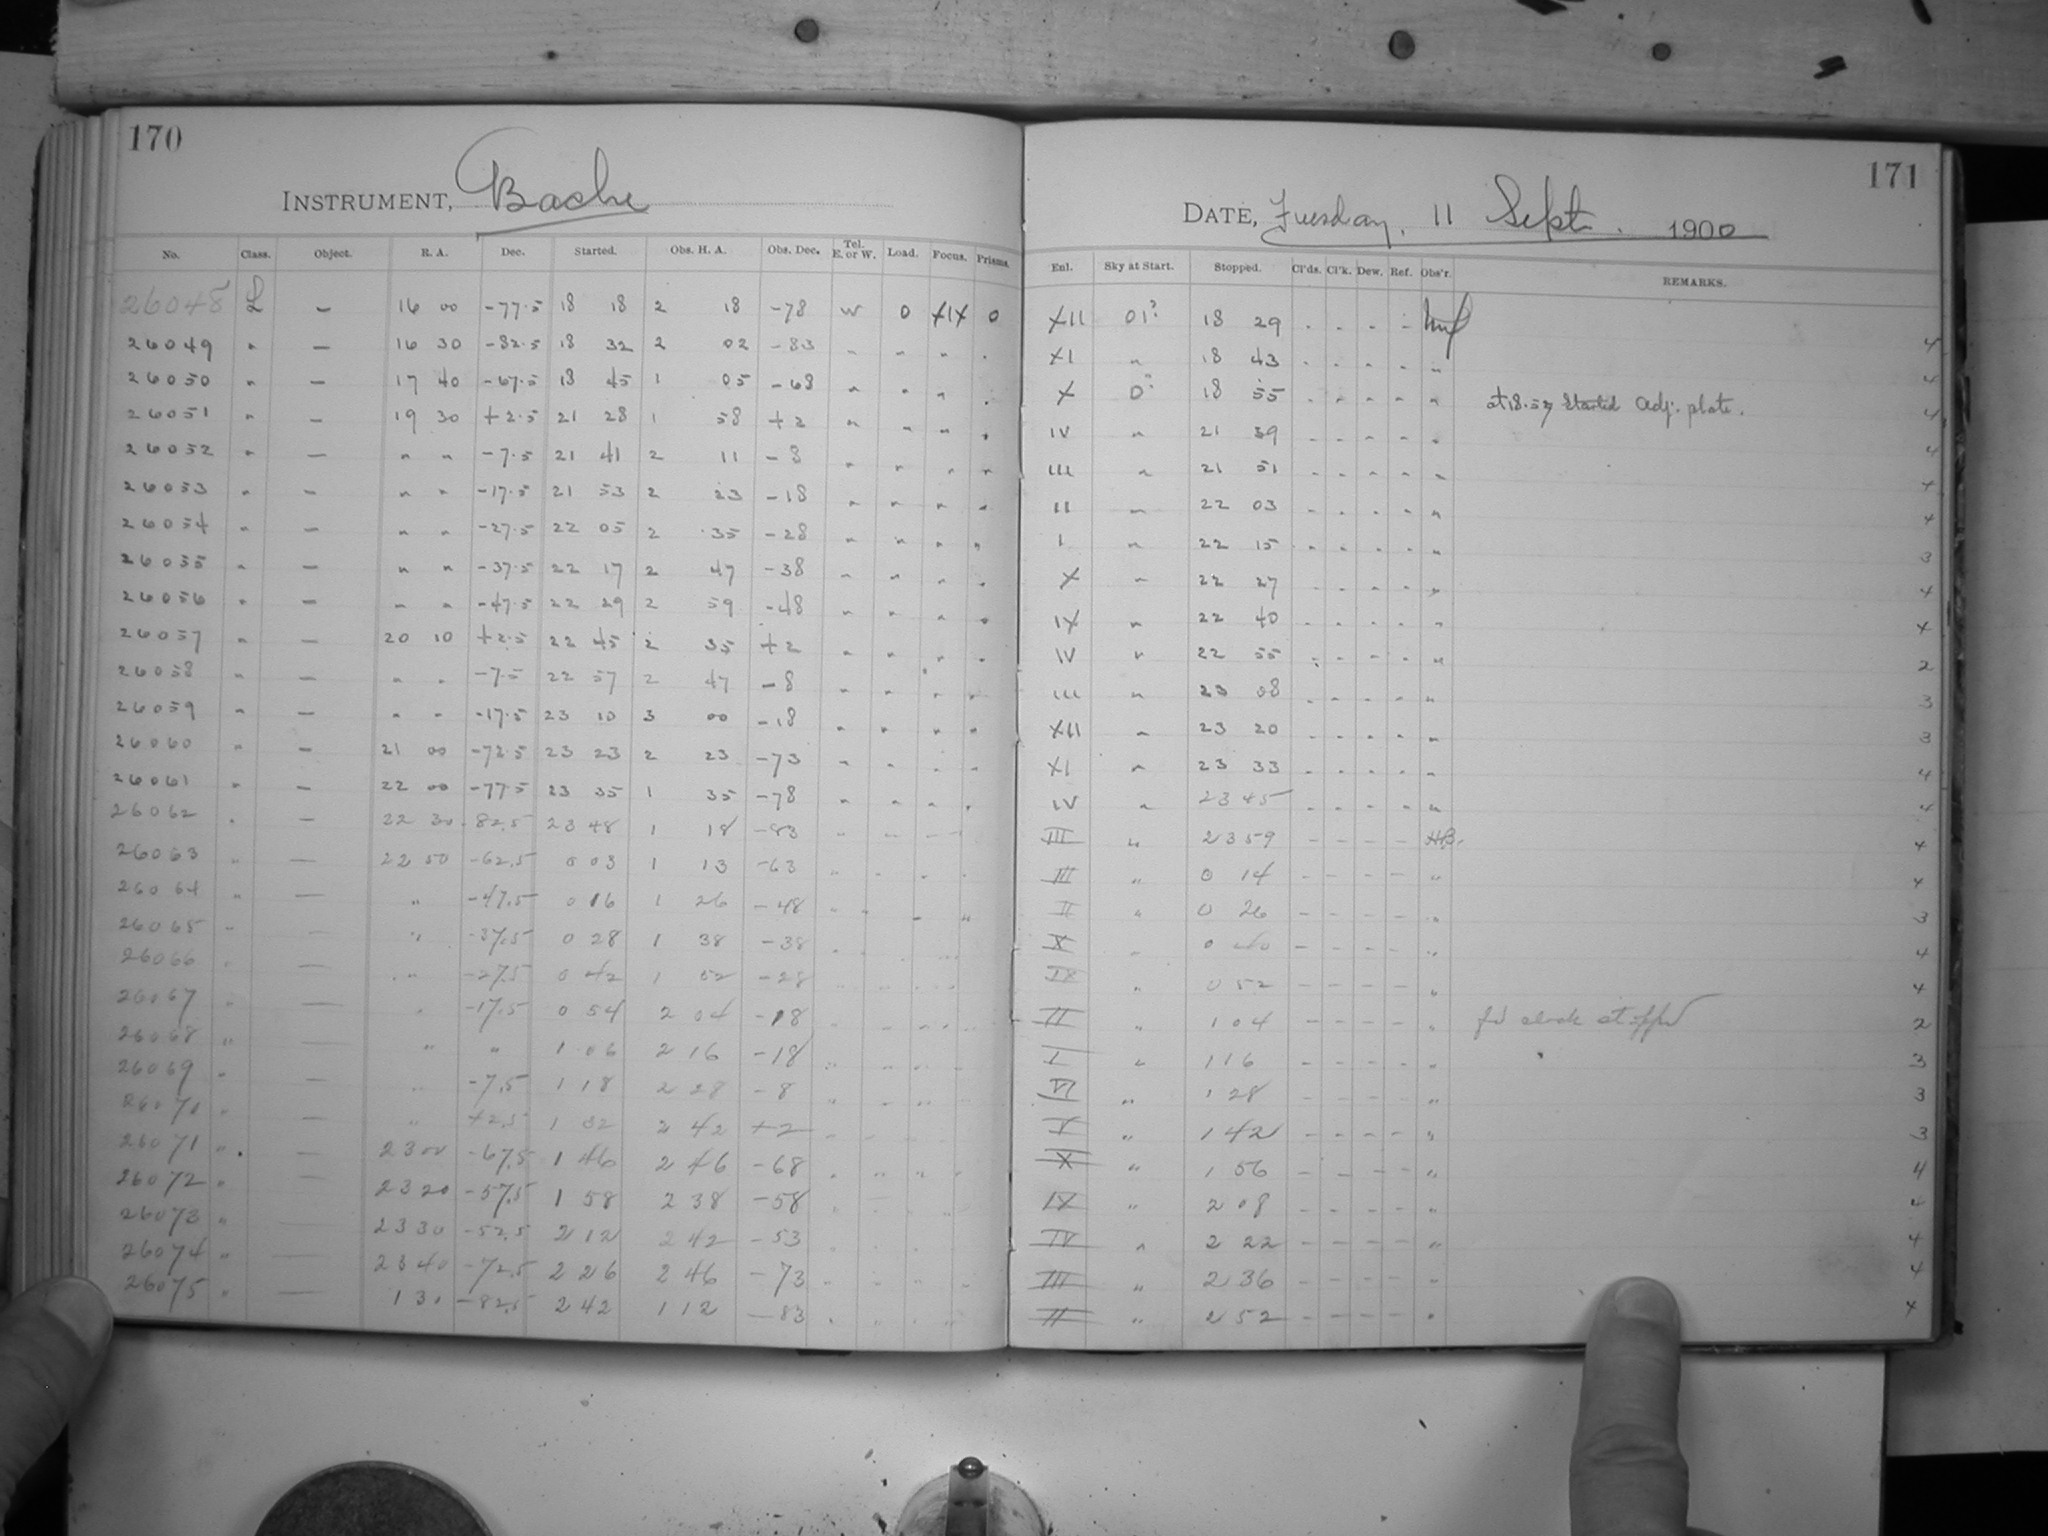 170
INSTRUMENT, Bache
No. Class. Object. R. A. Dec. Started. Obs. H. A. Obs. Dec. Tel. E. or W. Load. Focus. Prisms.
26048 L — 16 00 -77.5 18 18 2 18 -78 W 0 XIX 0
26049 " — 16 30 -82.5 18 32 2 02 -83 " " " "
26050 " — 17 40 -67.5 18 45 1 05 -68 " " " "
26051 " — 19 30 +2.5 21 28 1 58 +2 " " " "
26052 " — " " -7.5 21 41 2 11 -8 " " " "
26053 " — " " -17.5 21 53 2 23 -18 " " " "
26054 " — " " -27.5 22 05 2 35 -28 " " " "
26055 " — " " -37.5 22 17 2 47 -38 " " " "
26056 " — " " -47.5 22 29 2 59 -48 " " " "
26057 " — 20 10 +2.5 22 45 2 35 +2 " " " "
26058 " — " " -7.5 22 57 2 47 -8 " " " "
26059 " — " " -17.5 23 10 3 00 -18 " " " "
26060 " — 21 00 -72.5 23 23 2 23 -73 " " " "
26061 " — 22 00 -77.5 23 35 1 35 -78 " " " "
26062 " — 22 30 -82.5 23 48 1 18 -83 " " "
26063 " — 22 50 -62.5 0 03 1 13 -63 " " " "
26064 " — " -47.5 0 16 1 26 -48 " " " "
26065 " — " -37.5 0 28 1 38 -38 " "
26066 " — " -27.5 0 42 1 52 -28 " " " "
26067 " — " -17.5 0 54 2 04 -18 " " " "
26068 " — " " 1 06 2 16 -18 " " " "
26069 " — " -7.5 1 18 2 28 -8 " " " "
26070 " — " +2.5 1 32 2 42 +2 "
26071 " — 23 00 -67.5 1 46 2 46 -68 " " " "
26072 " — 23 20 -57.5 1 58 2 38 -58 "
26073 " — 23 30 -52.5 2 12 2 42 -53 " "
26074 " — 23 40 -72.5 2 26 2 46 -73 " " "
26075 " — 1 30 -82.5 2 42 1 12 -83 " " " "
171
DATE, Tuesday, 11 Sept. 1900
Enl. Sky at Start. Stopped. Cl'ds. Cl'k. Dew. Ref. Obs'r. REMARKS.
XII 01? 18 29 - - - -
XI " 18 43 - - - - " 4
X 0? 18 55 - - - - " at 18.57 started adj. plate. 4
IV " 21 39 - - - - " 4
III " 21 51 - - - - " 4
II " 22 03 - - - - " 4
I " 22 15 - - - - " 4
X " 22 27 - - - - " 3
IX " 22 40 - - - - " 4
IV " 22 55 - - - - " 4
III " 23 08 - - - - " 2
XII " 23 20 - - - - " 3
XI " 23 33 - - - - " 3
IV " 23 45 - - - - " 4
III " 23 59 - - - - HB. 4
III " 0 14 - - - - " 4
II " 0 26 - - - - " 4
X " 0 40 - - - - " 3
IX " 0 52 - - - - " 4
II " 1 04 - - - - " fd clock stopped 4
I " 1 16 - - - - " 2
VI " 1 28 - - - - " 3
V " 1 42 - - - - " 3
X " 1 56 - - - - " 3
IX " 2 08 - - - - " 4
IV " 2 22 - - - - " 4
III " 2 36 - - - - " 4
II " 2 52 - - - - " 4
4